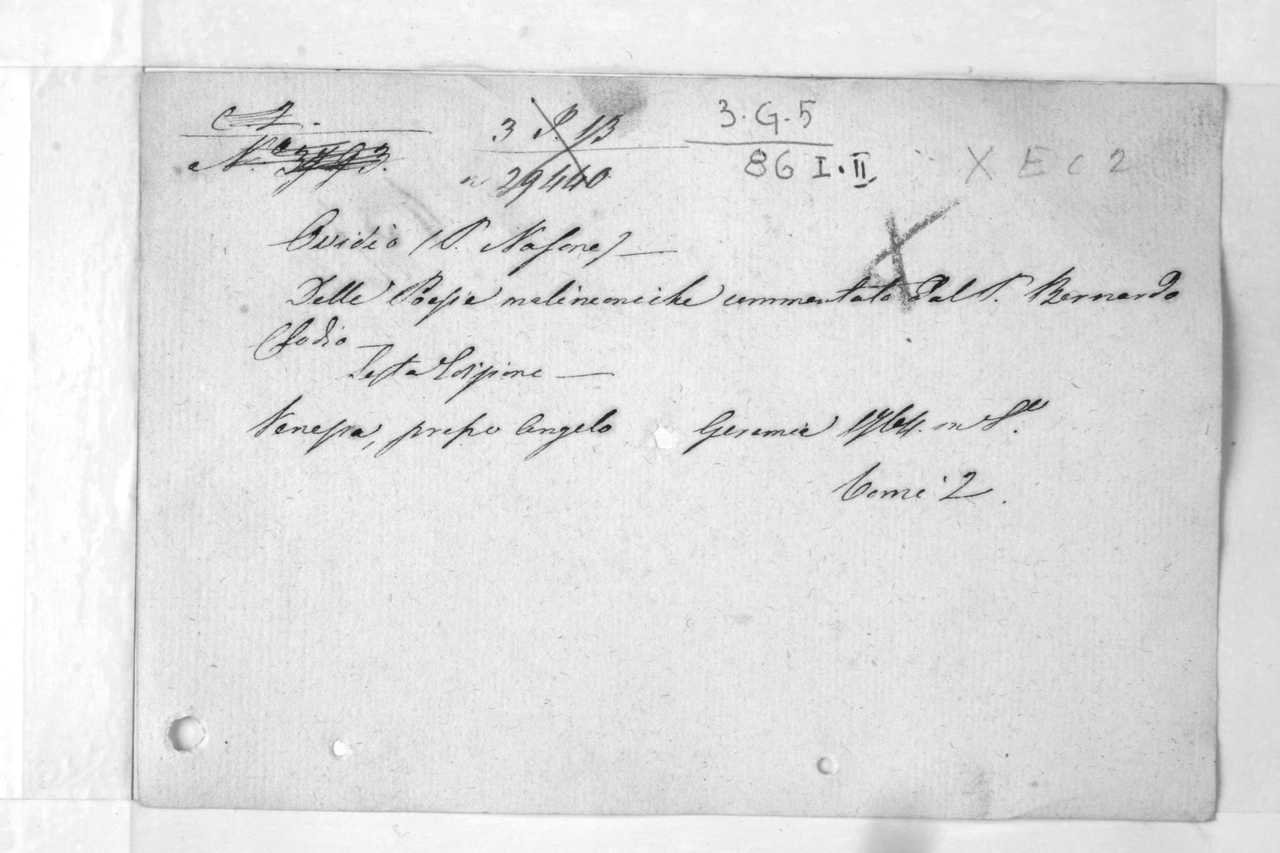 3 P. 13
3. G. 5
29440
86 I. II
X E C 2
Ovidio (P. Nasone) —
Delle Poesie malinconiche commentate dal P. Bernardo
Clodio —
Sesta Edizione —
Venezia, presso Angelo Geremia 1764. in 8.º
Tomi 2.